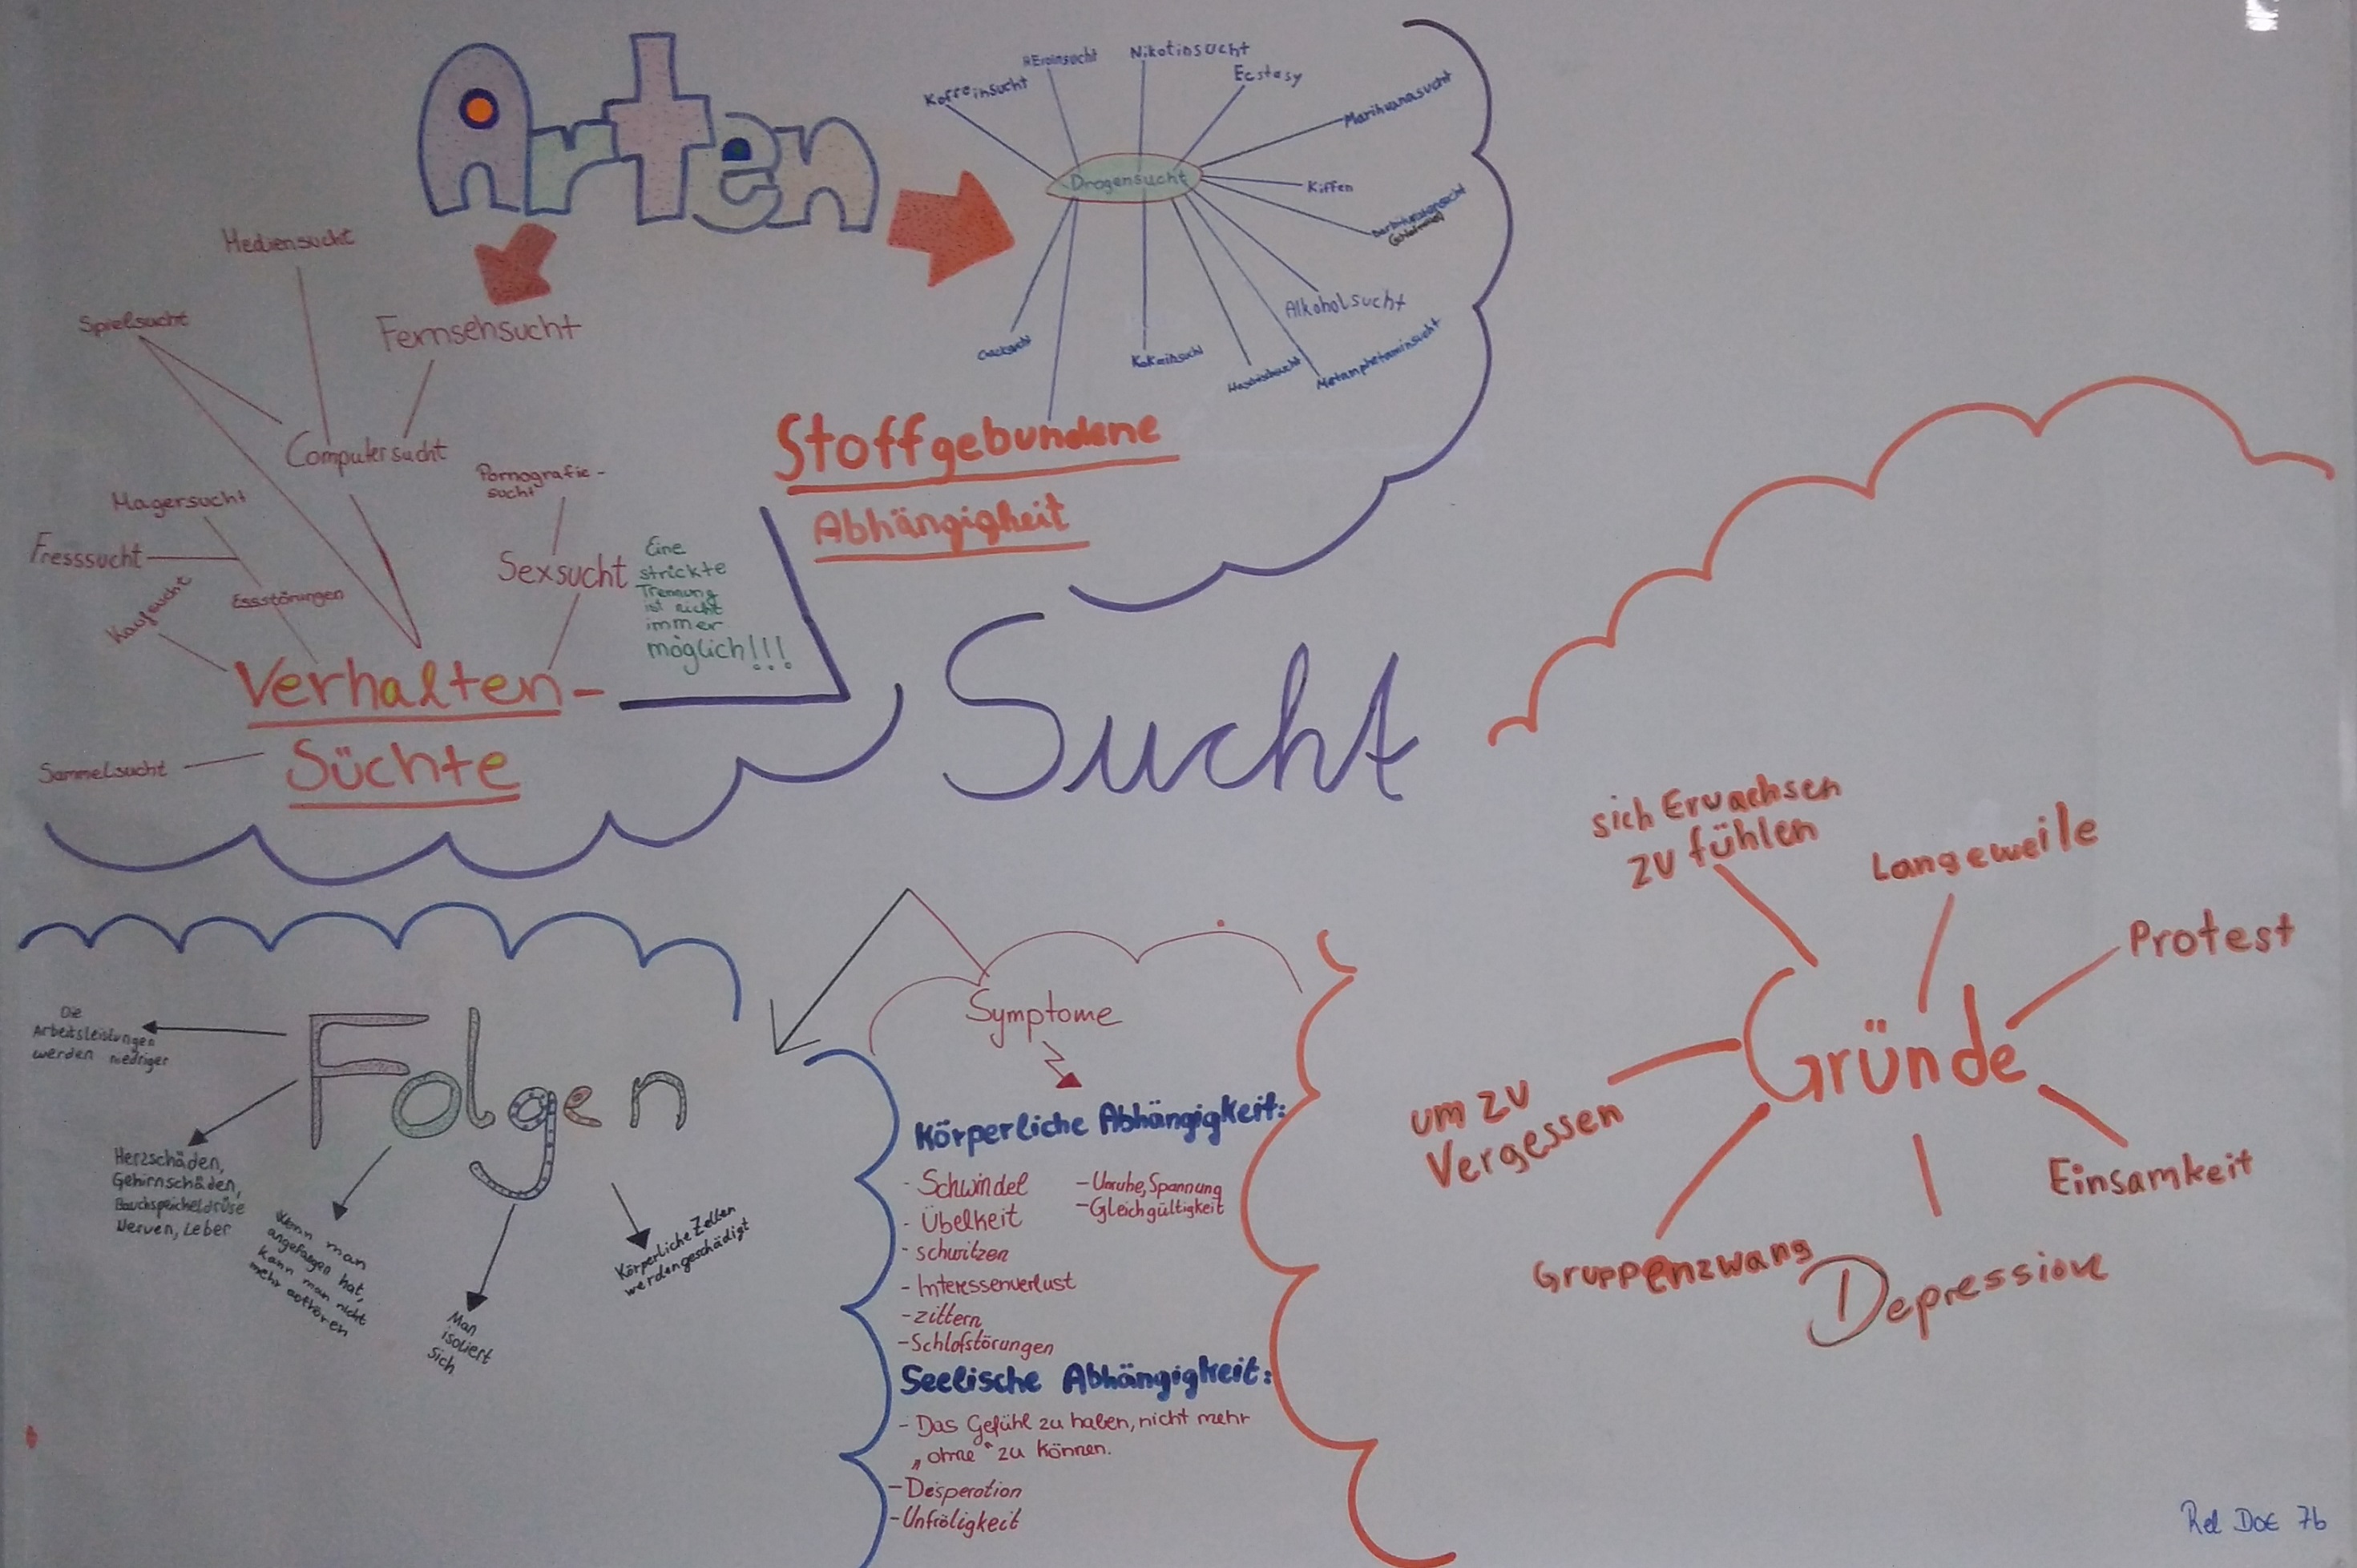 Arten
Koffeinsucht
HEroinsucht
Nikotinsucht
Ecstasy
Marihuanasucht
Drogensucht
Kiffen
Alkoholsucht
Cracksucht
Kokainsucht
Metamphetaminsucht
Stoffgebundene
Abhängigkeit
Mediensucht
Spielsucht
Fernsehsucht
Computersucht
Pornografie-
sucht
Magersucht
Fresssucht
Kaufsucht
Essstörungen
Sexsucht
Eine
strickte
Trennung
ist nicht
immer
möglich!!!
Verhalten-
Süchte
Sammelsucht
Sucht
Folgen
Die
Arbeitsleistungen
werden niedriger
Herzschäden,
Gehirnschäden,
Bauchspeicheldrüse
Nerven, Leber
Wenn man
angefangen hat,
kann man nicht
mehr aufhören
Man
isoliert
sich
Körperliche Zellen
werden geschädigt
Symptome
Körperliche Abhängigkeit:
- Schwindel
- Übelkeit
- schwitzen
- Interessenverlust
- zittern
- Schlafstörungen
- Unruhe, Spannung
- Gleichgültigkeit
Seelische Abhängigkeit:
- Das Gefühl zu haben, nicht mehr
„ohne“ zu können.
- Desperation
- Unfröligkeit
Gründe
sich Erwachsen
zu fühlen
Langeweile
Protest
Einsamkeit
Depression
Gruppenzwang
um zu
Vergessen
Rel DOE 7b